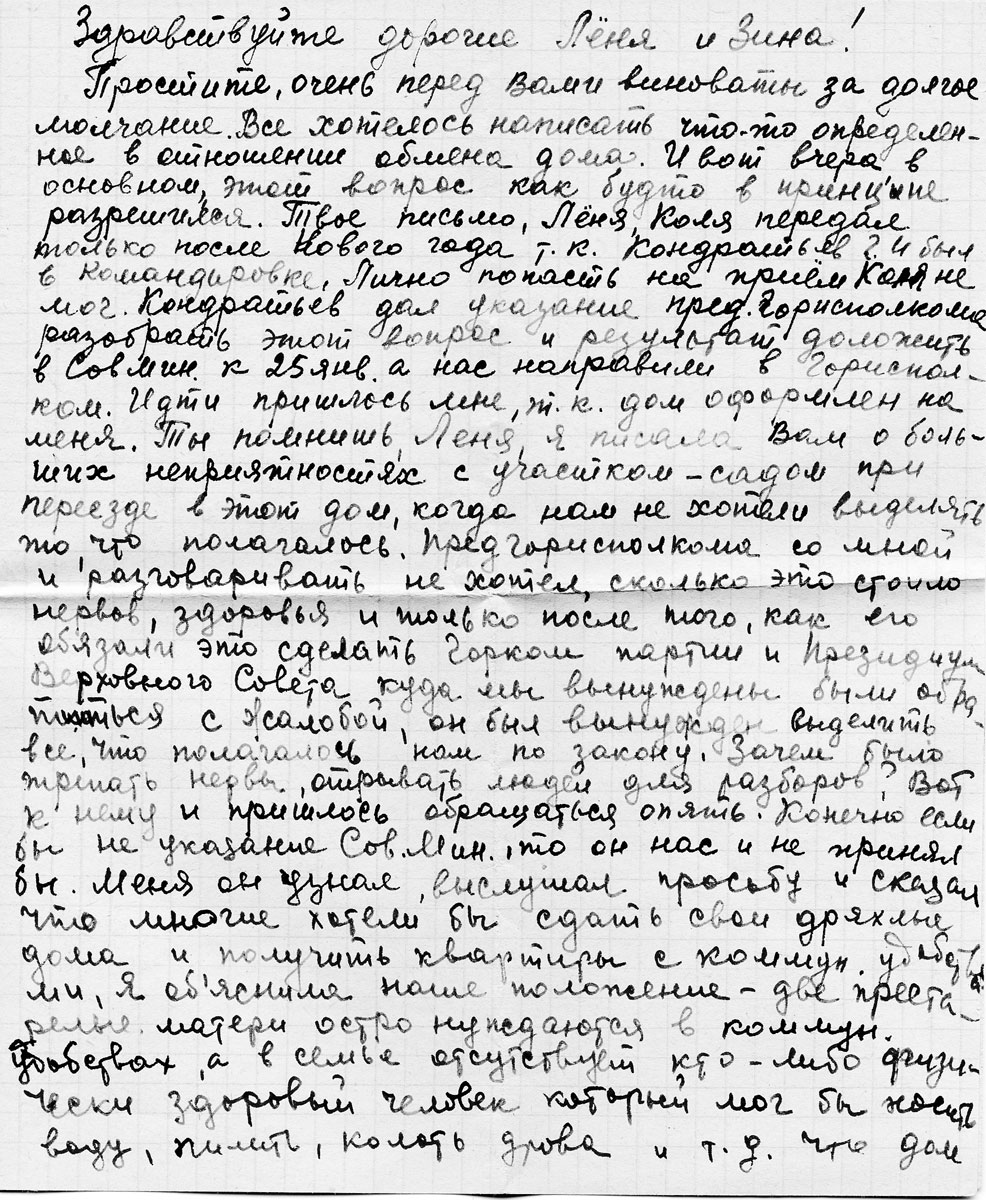 Здравствуйте дорогие Лёня и Зина!
Простите, очень перед Вами виноваты за долгое
молчание. Все хотелось написать что-то определен-
ное в отношении обмена дома. И вот вчера в
основном, этот вопрос как будто в принципе
разрешился. Твое письмо, Лёня, Коля передал
только после Нового года т.к. Кондратьев был
в командировке. Лично попасть на приём Коля не
мог. Кондратьев дал указание пред. Горисполкома
разобрать этот вопрос и результат доложить
в Сов.мин. к 25 янв. а нас направили в Гориспол-
ком. Идти пришлось мне, т.к. дом оформлен на
меня. Ты помнишь, Леня, я писала Вам о боль-
ших неприятностях с участком-садом при
переезде в этот дом, когда нам не хотели выделять
то, что полагалось. Предгорисполкома со мной
и разговаривать не хотел, сколько это стоило
нервов, здоровья и только после того, как его
обязали это сделать Горком партии и Президиум
Верховного Совета куда мы вынуждены были обра-
титься с жалобой, он был вынужден выделить
все, что полагалось нам по закону. Зачем было
трепать нервы, отрывать людей для разборов? Вот
к нему и пришлось обращаться опять. Конечно если
бы не указание Сов.Мин., то он нас и не принял
бы. Меня он узнал, выслушал просьбу и сказал
что многие хотели бы сдать свои дряхлые
дома и получить квартиры с коммун. удобства
ми, Я об'яснила наше положение - две преста-
релые матери остро нуждаются в коммун.
удобствах, а в семье отсутствует кто-либо физи-
чески здоровый человек который мог бы носить
воду, пилить, колоть дрова и т.д. что дом